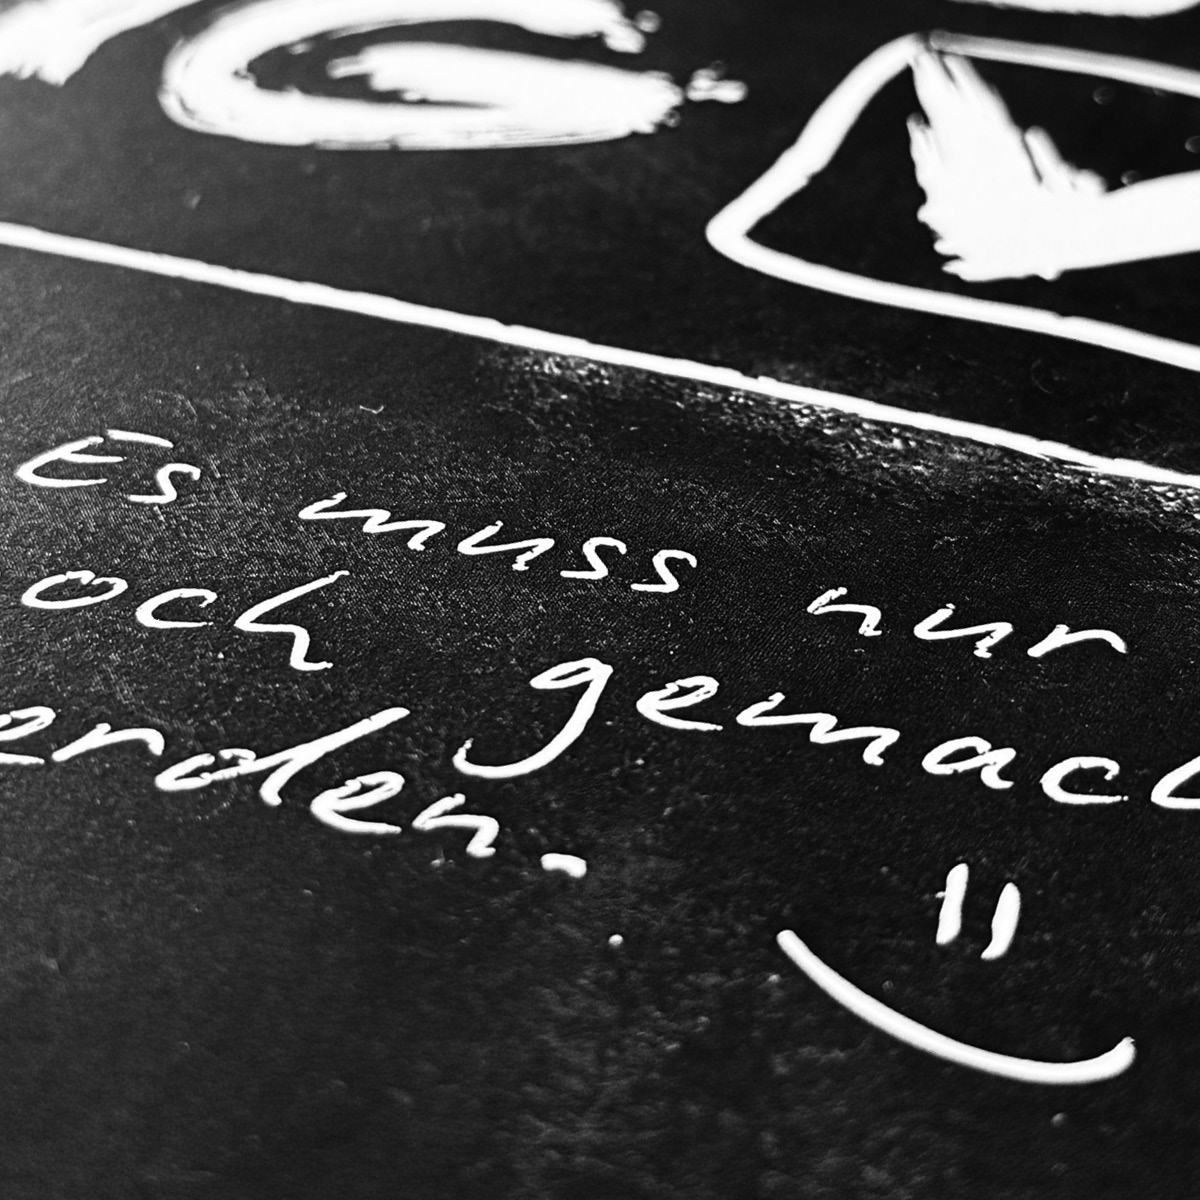 G
Es muss nur
och gemach
erden.